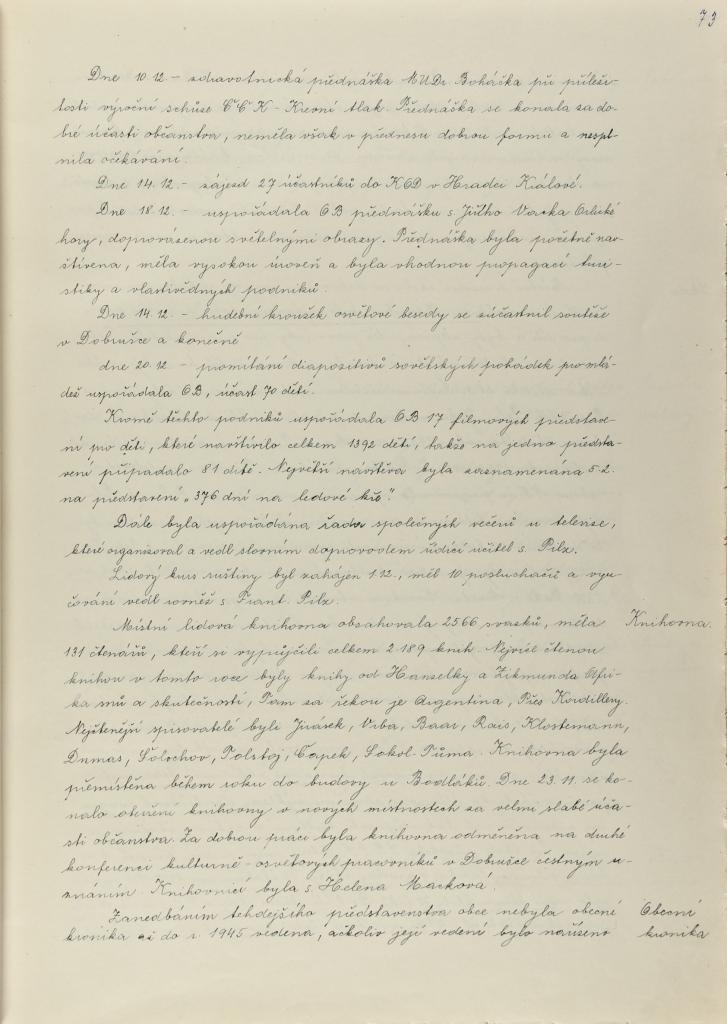 73
Dne 10.12. - zdravotnická přednáška MUDr. Boháčka při příleži-
tosti výroční schůze ČČK - Krevní tlak. Přednáška se konala za do-
bré účasti občanstva, neměla však v přednesu dobrou formu a nespl-
nila očekávání.
Dne 14.12. - zájezd 27 účastníků do KOD v Hradci Králové.
Dne 18.12. - uspořádala OB přednášku s. Jiřího Vacka Orlické
hory, doprovázenou světelnými obrazy. Přednáška byla početně nav-
štívena, měla vysokou úroveň a byla vhodnou propagací turi-
stiky a vlastivědných podniků.
Dne 14.12. - hudební kroužek osvětové besedy se zúčastnil soutěže
v Dobrušce a konečně
dne 20.12. - promítání diapozitivů sovětských pohádek pro mlá-
dež uspořádala OB, účast 70 dětí.
Kromě těchto podniků uspořádala OB 17 filmových představe-
ní pro děti, které navštívilo celkem 1392 dětí, takže na jedno předsta-
vení připadalo 81 dítě. Největší návštěva byla zaznamenána 5.2.
na představení „376 dní na ledové kře".
Dále byla uspořádána řada společných večerů u televise,
které organisoval a vedl slovním doprovodem řídící učitel s. Pilz.
Lidový kurs ruštiny byl zahájen 1.12., měl 10 posluchačů a vyu-
čování vedl rovněž s. Frant. Pilz.
Místní lidová knihovna obsahovala 2566 svazků, měla Knihovna.
131 čtenářů, kteří si vypůjčili celkem 2 189 knih. Nejvíce čtenou
knihou v tomto roce byly knihy od Hanzelky a Zikmunda Afri-
ka snů a skutečností, Tam za řekou je Argentina, Přes Kordillery.
Nejčtenější spisovatelé byli Jirásek, Vrba, Baar, Rais, Klostemann,
Dumas, Šolochov, Tolstoj, Čapek, Sokol-Tůma. Knihovna byla
přemístěna během roku do budovy u Bodláků. Dne 23.11. se ko-
nalo otevření knihovny v nových místnostech za velmi slabé úča-
sti občanstva. Za dobrou práci byla knihovna odměněna na druhé
konferenci kulturně-osvětových pracovníků v Dobrušce čestným u-
znáním. Knihovnicí byla s. Helena Macková.
Zanedbáním tehdejšího představenstva obce nebyla obecní Obecní
kronika až do r. 1945 vedena, ačkoliv její vedení bylo nařízeno kronika